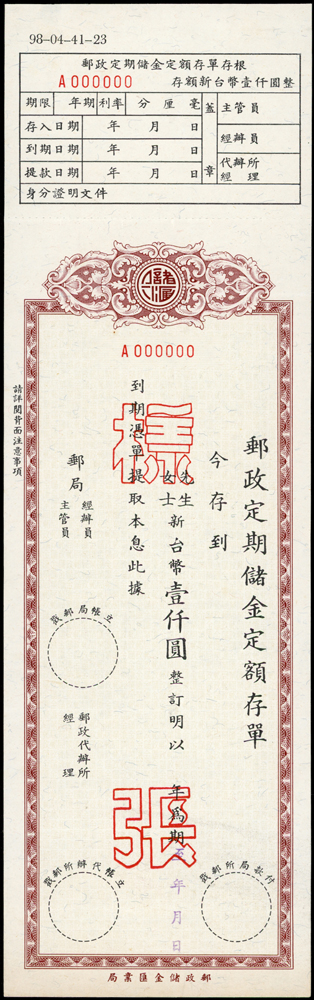 98-04-41-23
郵政定期儲金定額存單存根
A000000 存額新台幣壹仟圓整
期限 年期 利率 分 厘 毫 蓋章 主管員
存入日期 年 月 日 經辦員
到期日期 年 月 日 代辦所經理
提款日期 年 月 日
身分證明文件
A000000
郵政定期儲金定額存單
今存到
先生
女士
新台幣壹仟圓整訂明以 年為期至 年 月 日
到期憑單提取本息此據
郵局 經辦員
主管員
郵政代辦所
經理
樣張
立帳郵局戳
立帳代辦所郵戳
付款局所郵戳
請詳閱背面注意事項
郵政儲金匯業局